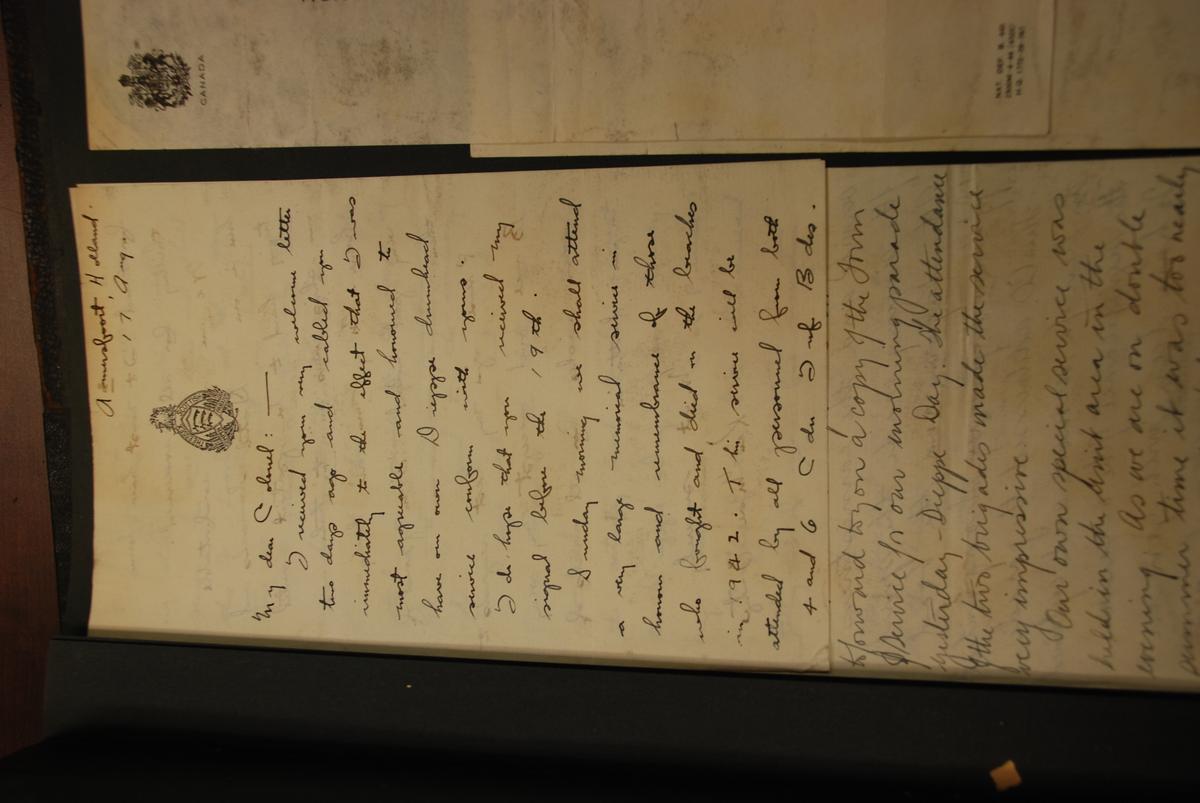 CANADA
NAT. DEF. B. 446
H.Q. 1772-39-767
Amersfoort, Holland.
17, Aug 45
My dear Colonel: —
I received your very welcome letter
two days ago and cabled you
immediately to the effect that I was
most agreable and honoured to
have our own Dieppe drumhead
service conform with yours.
I do hope that you received my
signal before the 19th.
Sunday morning we shall attend
a very large memorial service in
honour and remembrance of those
who fought and died on the beaches
in 1942. This service will be
attended by all personnel from both
4 and 6 Cdn Inf Bdes.
forward to you a copy of the Form
of Service for our evolving parade
yesterday – Dieppe Day. The attendance
of the two brigades made the service
very impressive.
Our own special service was
held in the limit area in the
evening. As we are on double
summer time it was too nearly